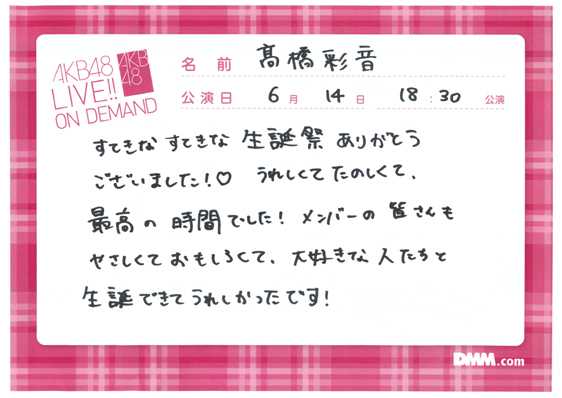 AKB48
LIVE!!
ON DEMAND
AKB
48
名前 髙橋彩音
公演日 6月 14日 18:30 公演
すてきな すてきな 生誕祭 ありがとう
ございました!♡ うれしくて たのしくて、
最高の 時間でした! メンバーの 皆さんも
やさしくて おもしろくて、大好きな 人たちと
生誕できて うれしかったです!
DMM.com